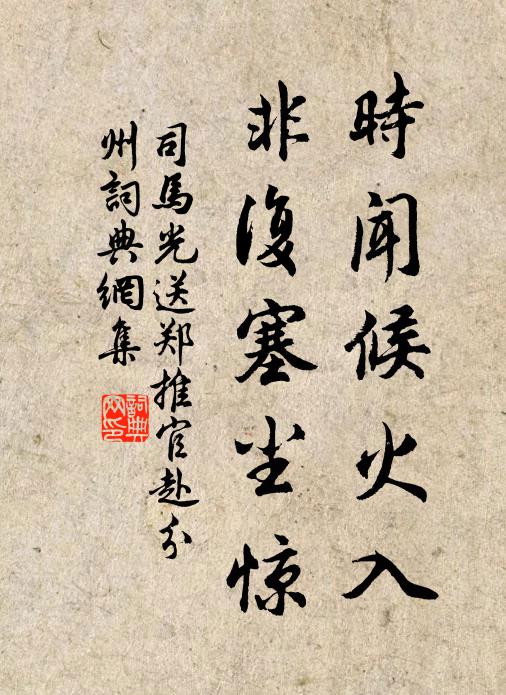 時闻候火入
非復塞尘惊
司馬光送郑推官赴汾
州詞典網集
詞典网印